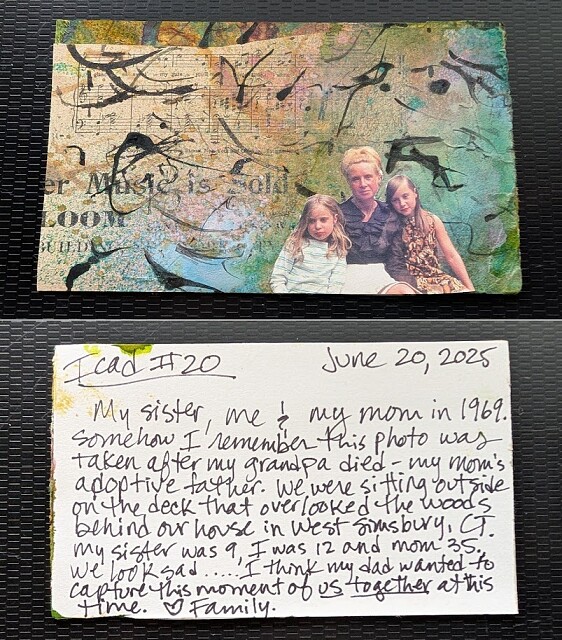 er Music is Sold
LOOM
BUILDING
Icad #20 June 20, 2025
My sister, me & my mom in 1969.
somehow I remember this photo was
taken after my grandpa died - my mom's
adoptive father. We were sitting outside
on the deck that overlooked the woods
behind our house in West Simsbury, CT.
my sister was 9, I was 12 and mom 35.
we look sad..... I think my dad wanted to
capture this moment of us together at this
time. ♡ Family.